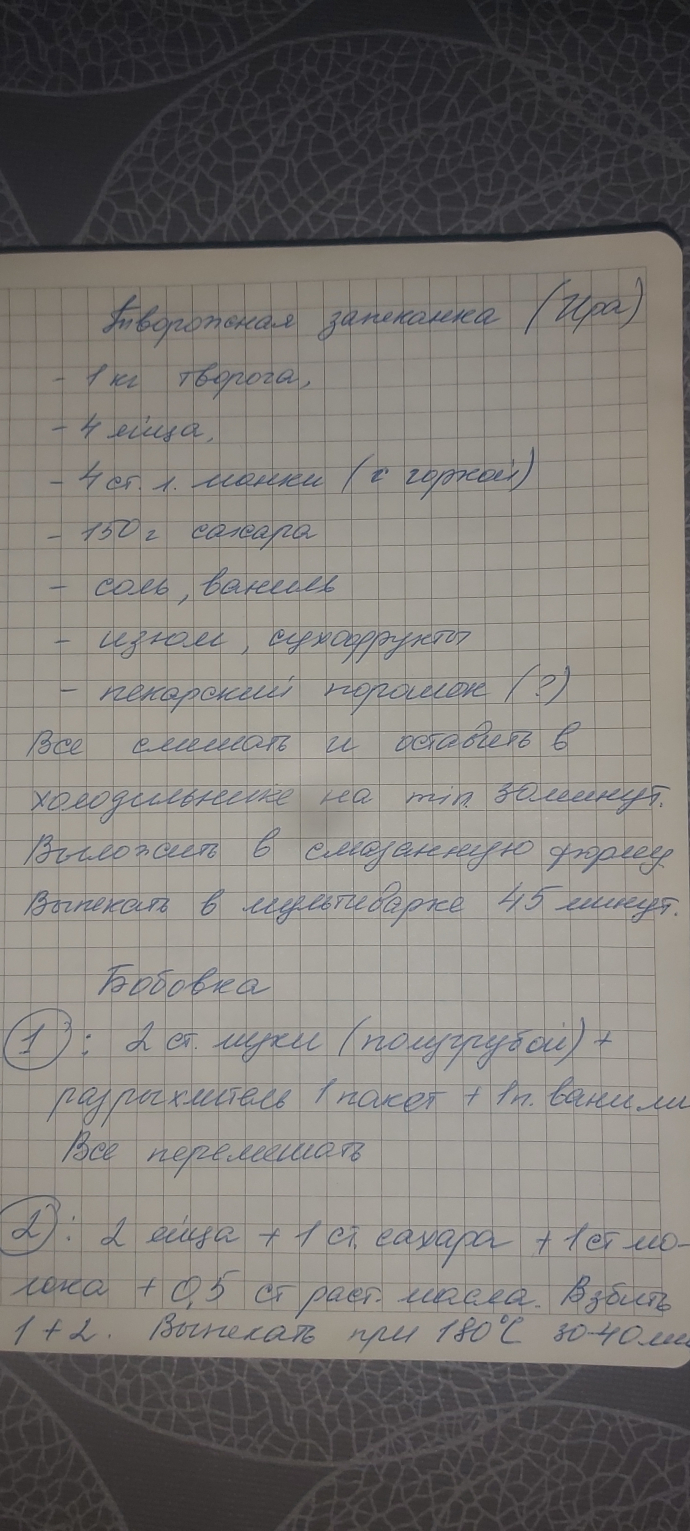 Творожная запеканка (Ира)
- 1 кг творога,
- 4 яйца,
- 4 ст. л. манки (с горкой)
- 150 г сахара
- соль, ваниль
- изюм, сухофрукты
- пекарский порошок (?)
Все смешать и оставить в
холодильнике на min. 30 минут.
Выложить в смазанную форму
Выпекать в мультиварке 45 минут.
Бобовка
1: 2 ст. муки (полугрубой) +
разрыхлитель 1 пакет + 1 п. ванили
Все перемешать
2: 2 яйца + 1 ст. сахара + 1 ст мо-
лока + 0,5 ст раст. масла. Взбить
1 + 2. Выпекать при 180°C 30-40 ми